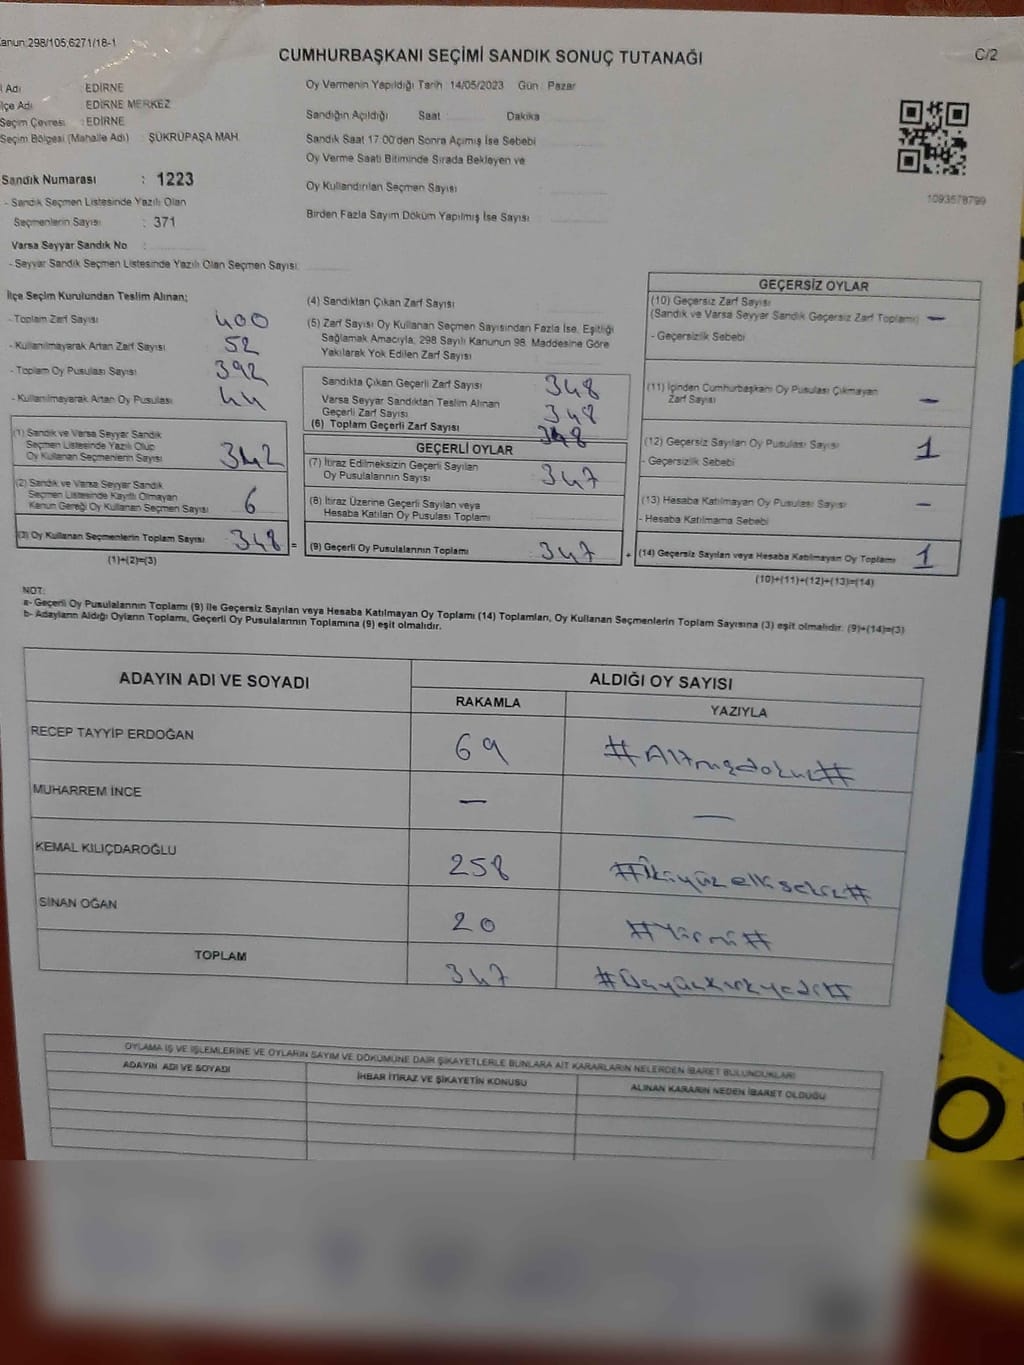 anun:298/105;6271/18-1
CUMHURBAŞKANI SEÇİMİ SANDIK SONUÇ TUTANAĞI
C/2
l Adı : EDİRNE
lçe Adı : EDİRNE MERKEZ
Seçim Çevresi : EDİRNE
Seçim Bölgesi (Mahalle Adı) : ŞÜKRÜPAŞA MAH.
Sandık Numarası : 1223
- Sandık Seçmen Listesinde Yazılı Olan
Seçmenlerin Sayısı : 371
Varsa Seyyar Sandık No :
- Seyyar Sandık Seçmen Listesinde Yazılı Olan Seçmen Sayısı:
Oy Vermenin Yapıldığı Tarih : 14/05/2023 Gün : Pazar
Sandığın Açıldığı Saat Dakika
Sandık Saat 17.00'den Sonra Açımış İse Sebebi
Oy Verme Saati Bitiminde Sırada Bekleyen ve
Oy Kullandırılan Seçmen Sayısı :
Birden Fazla Sayım Döküm Yapılmış İse Sayısı :
1093578799
İlçe Seçim Kurulundan Teslim Alınan;
- Toplam Zarf Sayısı 400
- Kullanılmayarak Artan Zarf Sayısı 52
- Toplam Oy Pusulası Sayısı 392
- Kullanılmayarak Artan Oy Pusulası 44
(1) Sandık ve Varsa Seyyar Sandık
Seçmen Listesinde Yazılı Olup
Oy Kullanan Seçmenlerin Sayısı 342
(2) Sandık ve Varsa Seyyar Sandık
Seçmen Listesinde Kayıtlı Olmayan
Kanun Gereği Oy Kullanan Seçmen Sayısı 6
(3) Oy Kullanan Seçmenlerin Toplam Sayısı 348 =
(1)+(2)=(3)
(4) Sandıktan Çıkan Zarf Sayısı
(5) Zarf Sayısı Oy Kullanan Seçmen Sayısından Fazla İse, Eşitliği
Sağlamak Amacıyla, 298 Sayılı Kanunun 98. Maddesine Göre
Yakılarak Yok Edilen Zarf Sayısı
Sandıkta Çıkan Geçerli Zarf Sayısı : 348
Varsa Seyyar Sandıktan Teslim Alınan
Geçerli Zarf Sayısı : 348
(6) Toplam Geçerli Zarf Sayısı : 348
GEÇERLİ OYLAR
(7) İtiraz Edilmeksizin Geçerli Sayılan
Oy Pusulalarının Sayısı : 347
(8) İtiraz Üzerine Geçerli Sayılan veya
Hesaba Katılan Oy Pusulası Toplamı :
(9) Geçerli Oy Pusulalarının Toplamı : 347 +
GEÇERSİZ OYLAR
(10) Geçersiz Zarf Sayısı
(Sandık ve Varsa Seyyar Sandık Geçersiz Zarf Toplamı) : —
- Geçersizlik Sebebi
(11) İçinden Cumhurbaşkanı Oy Pusulası Çıkmayan
Zarf Sayısı : —
(12) Geçersiz Sayılan Oy Pusulası Sayısı : 1
- Geçersizlik Sebebi
(13) Hesaba Katılmayan Oy Pusulası Sayısı : —
- Hesaba Katılmama Sebebi
(14) Geçersiz Sayılan veya Hesaba Katılmayan Oy Toplamı : 1
(10)+(11)+(12)+(13)=(14)
NOT:
a- Geçerli Oy Pusulalarının Toplamı (9) ile Geçersiz Sayılan veya Hesaba Katılmayan Oy Toplamı (14) Toplamları, Oy Kullanan Seçmenlerin Toplam Sayısına (3) eşit olmalıdır. (9)+(14)=(3)
b- Adayların Aldığı Oyların Toplamı, Geçerli Oy Pusulalarının Toplamına (9) eşit olmalıdır.
ADAYIN ADI VE SOYADI ALDIĞI OY SAYISI
RAKAMLA YAZIYLA
RECEP TAYYİP ERDOĞAN 69 #Altmışdokuz#
MUHARREM İNCE — —
KEMAL KILIÇDAROĞLU 258 #İkiyüzellisekiz#
SİNAN OĞAN 20 #Yirmi#
TOPLAM 347 #Üçyüzkırkyedi#
OYLAMA İŞ VE İŞLEMLERİNE VE OYLARIN SAYIM VE DÖKÜMÜNE DAİR ŞİKAYETLERLE BUNLARA AİT KARARLARIN NELERDEN İBARET BULUNDUKLARI
ADAYIN ADI VE SOYADI İHBAR İTİRAZ VE ŞİKAYETİN KONUSU ALINAN KARARIN NEDEN İBARET OLDUĞU